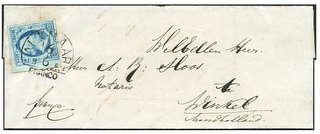 WelEdelen Heer
Heer A. B. Sloos.
Notaris
te
Winkel
Noordholland
franco
FRANCO